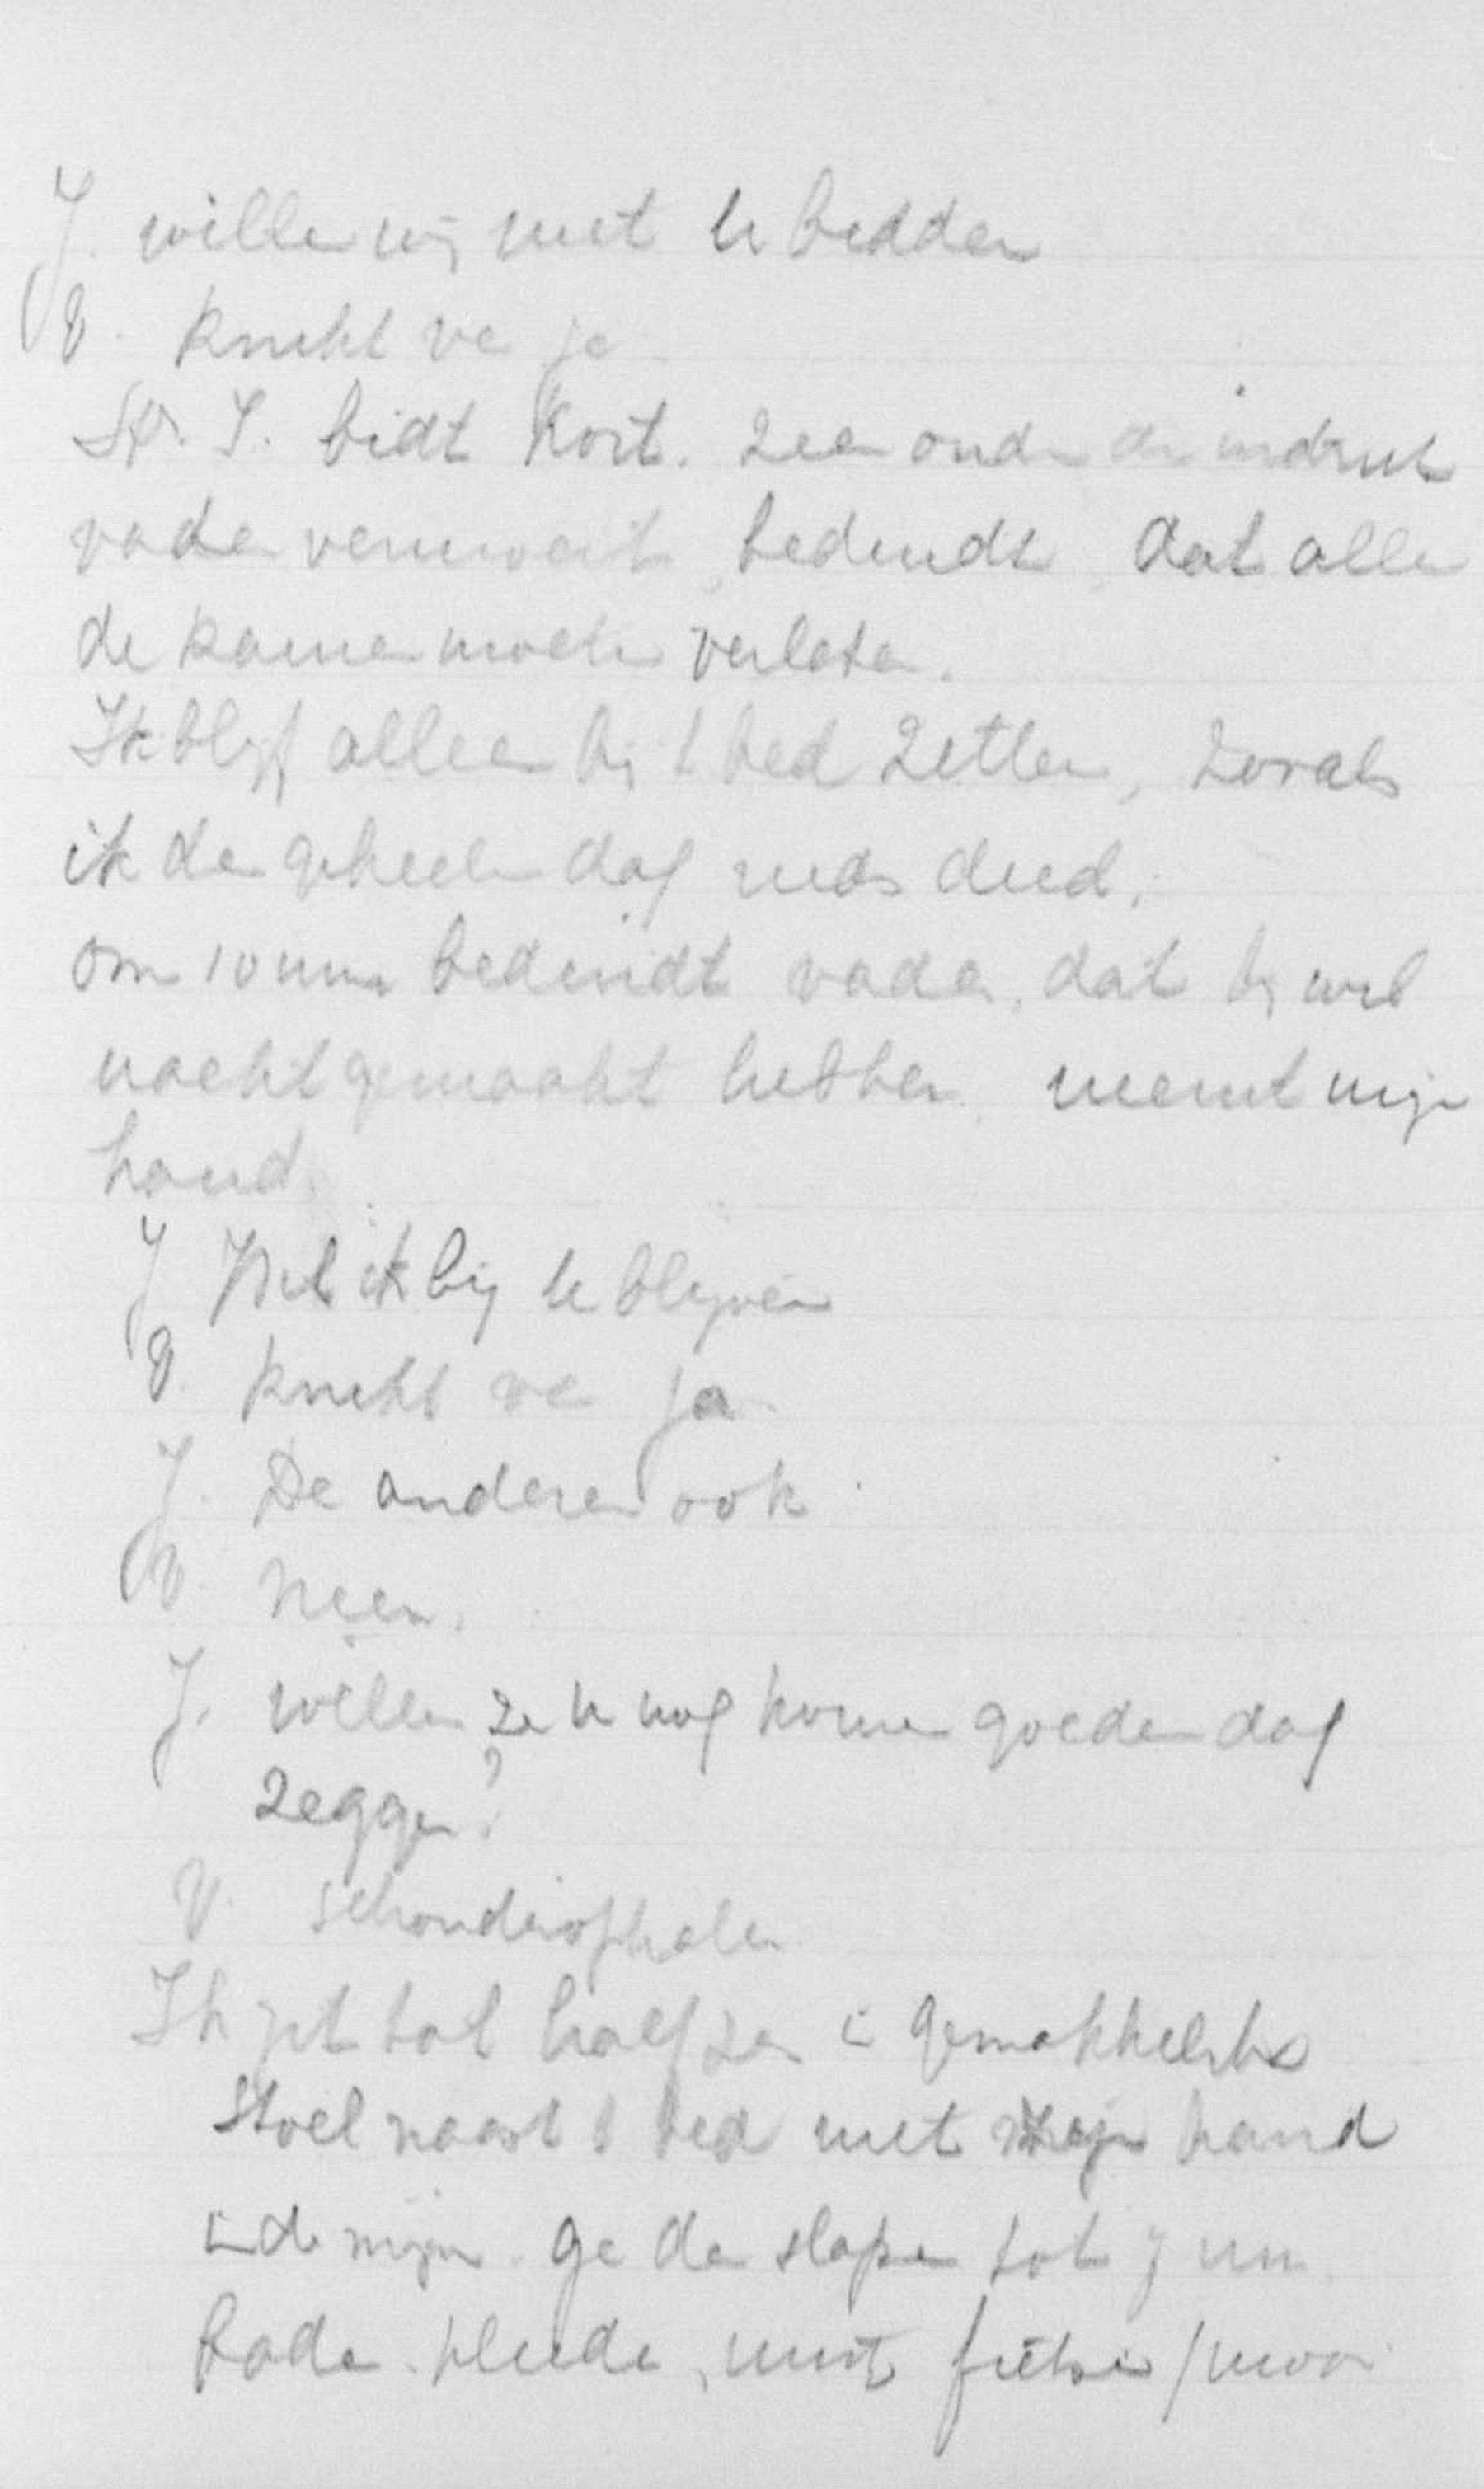 J. wille wij met U bidden
V. knikt van ja
J. bidt kort. Zeer onder den indruk
vader vermoeit, beduidt, dat allen
de kamer moeten verlaten.
Ik blijf alleen bij 't bed zitten, zooals
ik den geheelen dag reeds deed.
Om 10 uur beduidt vader, dat hij wil
nacht gemaakt hebben, neemt mijn
hand.
J Wil ik bij U blijven
V. knikt van ja
J. De anderen ook
V. Neen.
J. willen ze U nog komen goeden dag
zeggen?
V. schouderophalen
Ik zit tot half zes in gemakkelijke
stoel naast 't bed met zijn hand
in de mijne. Ga dan slapen tot 7 uur
Bade. kleede,